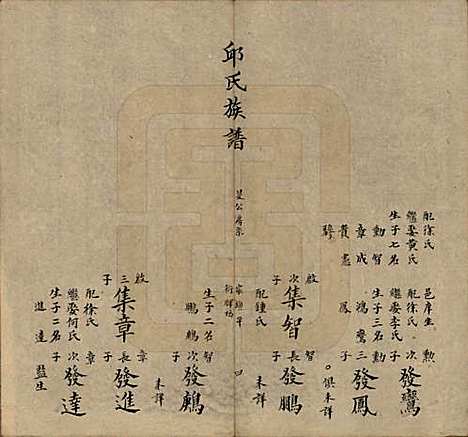 配徐氏
繼娶黄氏
生子七名
勳智
章成
貴憲
邑庠生
配徐氏
繼娶李氏
生子三名
鴻鸞三
鳳
勲次子發鸞
勳三子發鳳
俱未詳
邱氏族譜
啟次子集智
配鍾氏
生子二名
鵬鶊
智長子發鵬
未詳
智次子發鶊
未詳
啟三子集章
配徐氏
繼娶何氏
生子二名
進達
章長子發進
章次子發達
監生